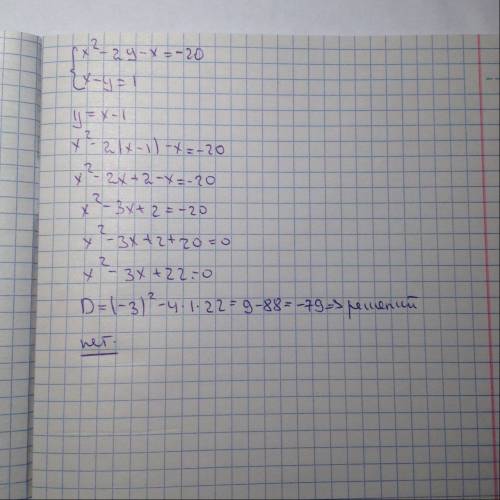 x² - 2y - x = -20
x - y = 1
y = x - 1
x² - 2(x-1) - x = -20
x² - 2x + 2 - x = -20
x² - 3x + 2 = -20
x² - 3x + 2 + 20 = 0
x² - 3x + 22 = 0
D = (-3)² - 4·1·22 = 9 - 88 = -79 => решений
нет.